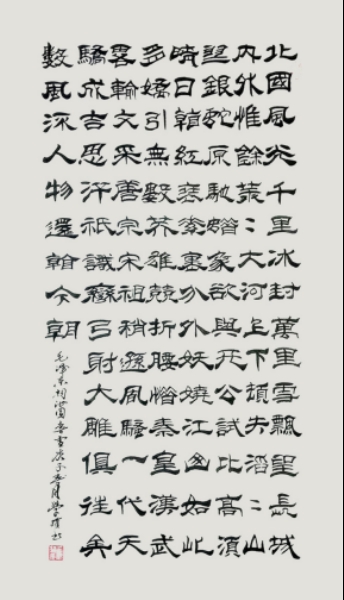 北國風光千里冰封萬里雪飄望長城
内外惟餘莽〻大河上下頓失滔〻山
舞銀蛇原馳蠟象欲與天公試比高須
晴日看紅裝素裹分外妖嬈江山如此
多嬌引無數英雄競折腰惜秦皇漢武
略輸文采唐宗宋祖稍遜風騷一代天
驕成吉思汗祇識彎弓射大雕俱往矣
數風流人物還看今朝
毛澤東詞沁園春雪庚子春月